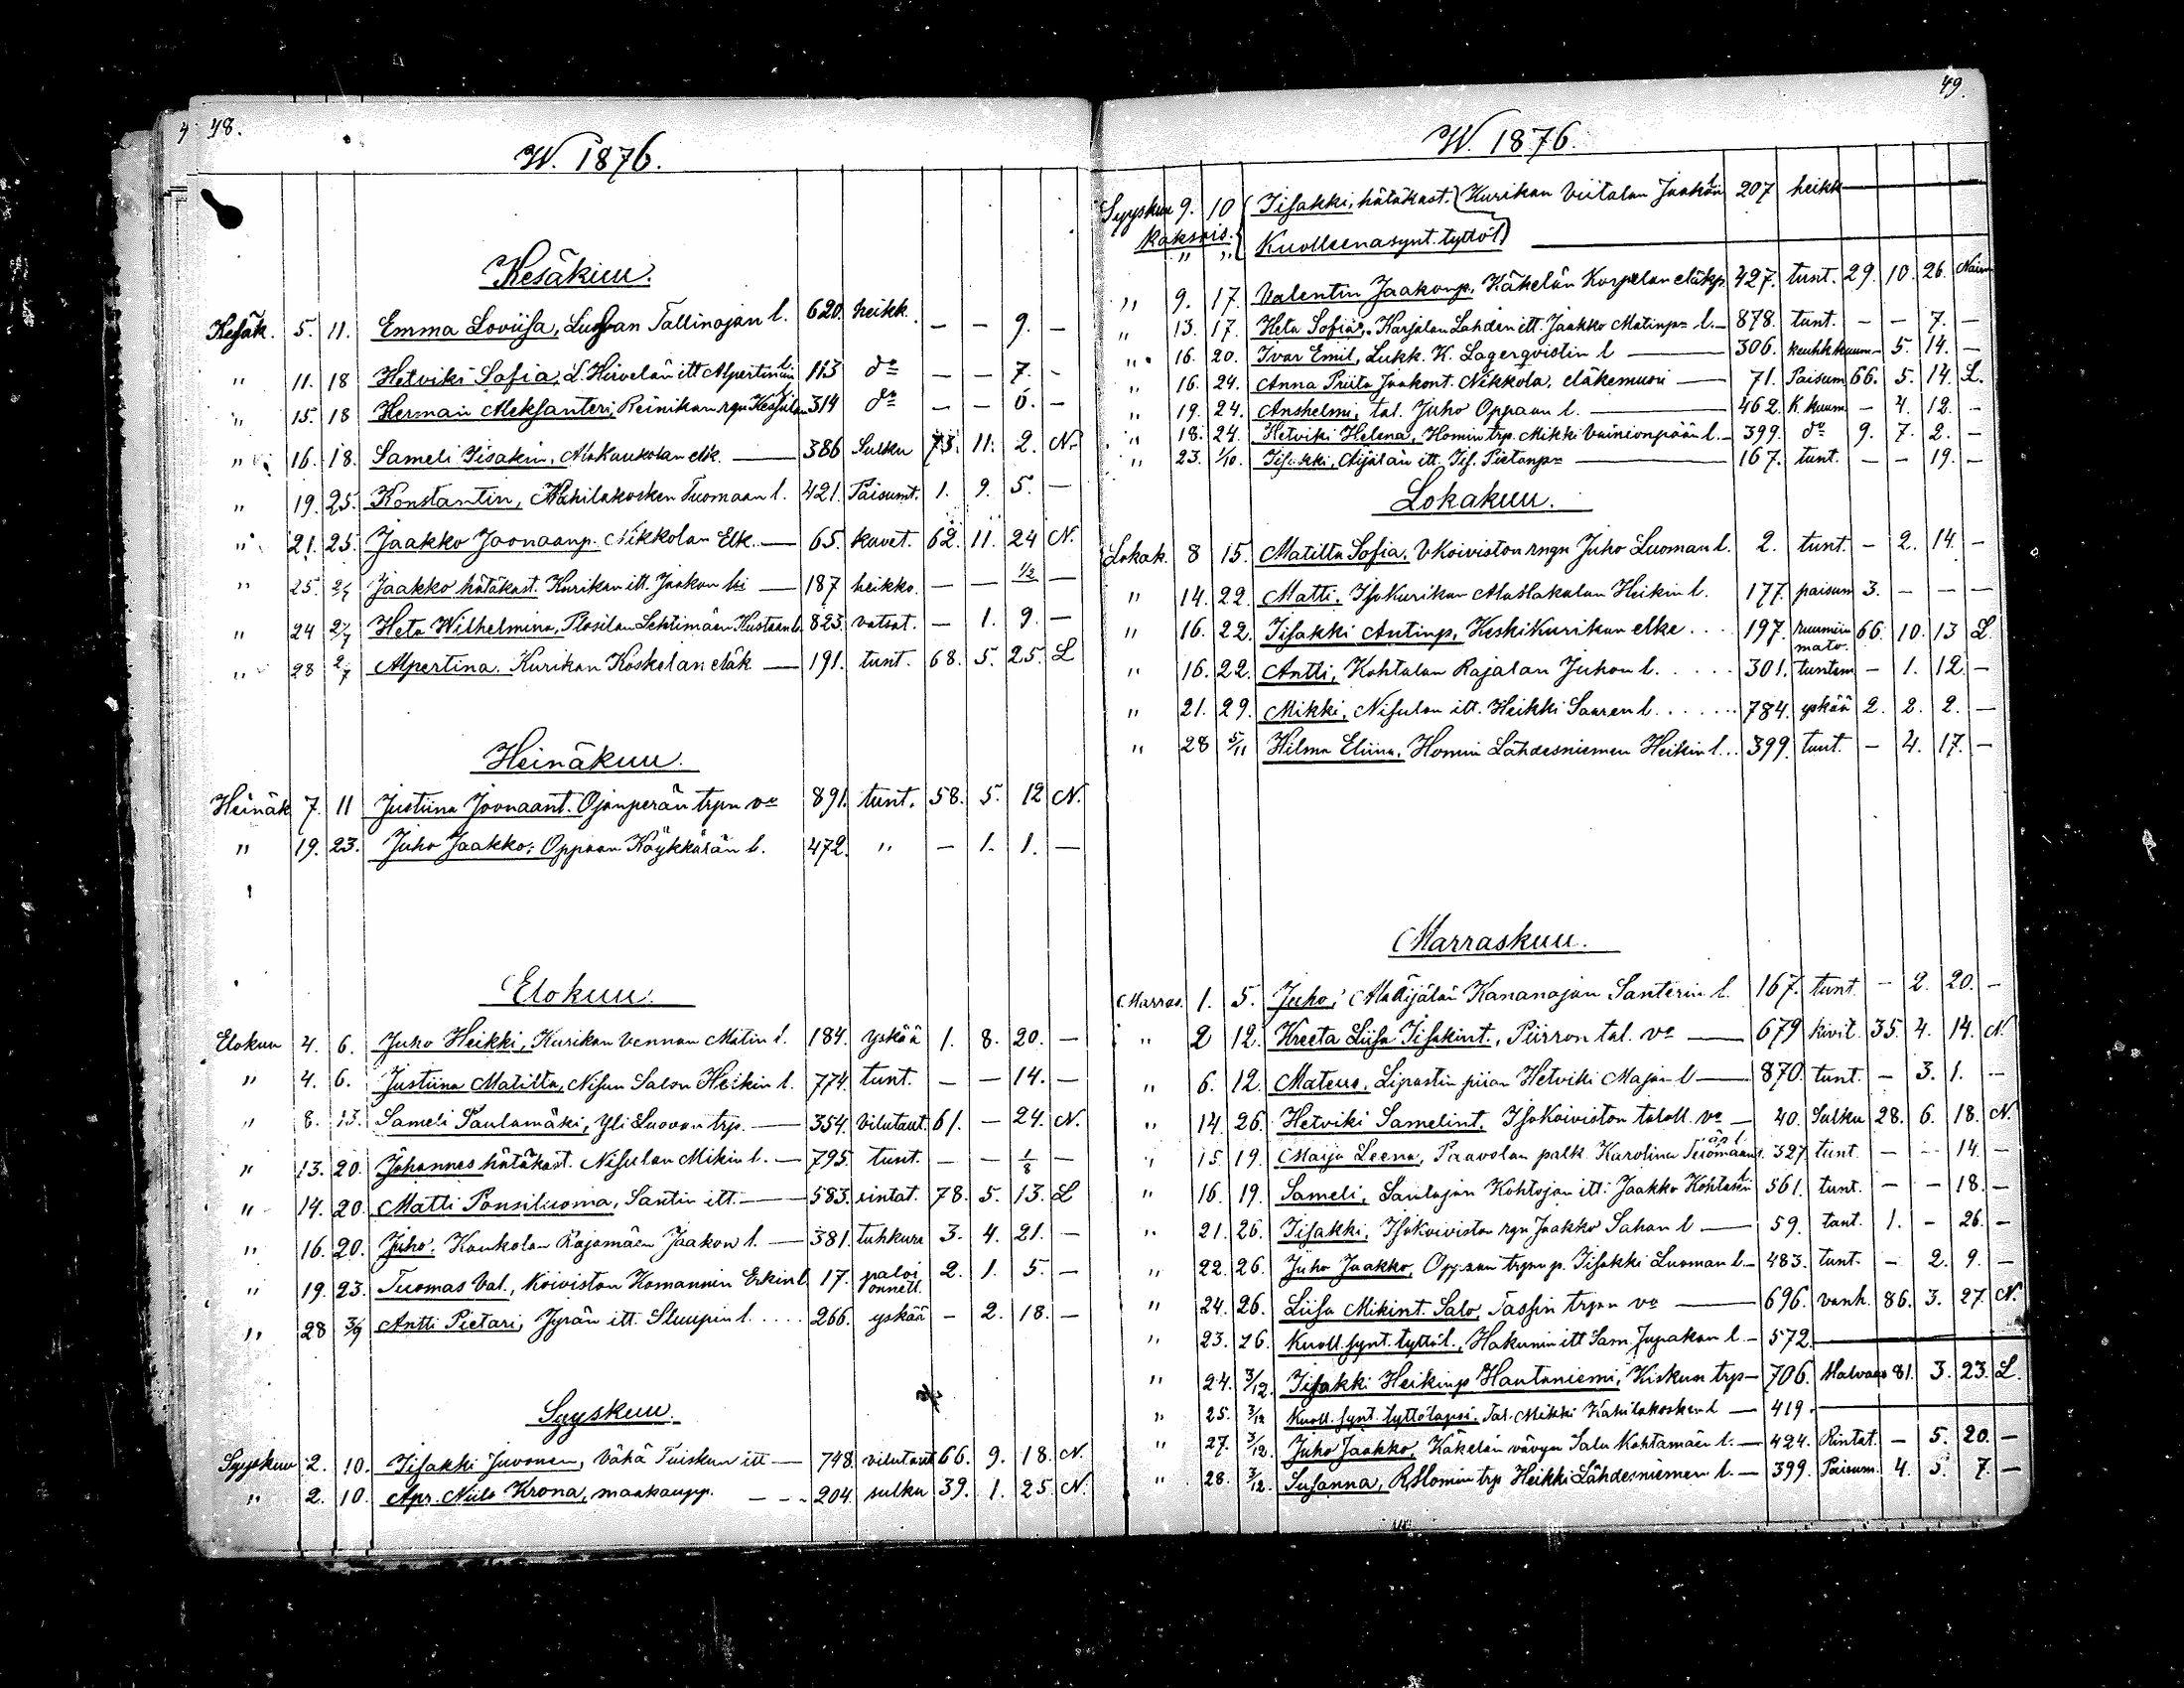 48.
W. 1876.
Kesäkuu.
Kesäk. 5. 11. Emma Loviisa, Luovan Tallinojan l. 620. heikk. — — 9. —
" 11. 18 Hetviki Sofia, L. Hirvelän itt Alpertinan l. 113 do — — 7. -
" 15. 18 Herman Aleksanteri, Reinikan rgn 314 do — — 6. -
" 16. 18. Sameli Iisakin, AlaKaukolan elk. — 386 Sulku 73. 11. 2. N.
" 19. 25. Konstantin, Kahilakosken Tuomaan l. 421. Paisumt. 1. 9. 5. —
" 21. 25. Jaakko Joonaanp. Nikkolan Elk. — 65. kuvet. 62. 11. 24 N.
" 25. 2/7 Jaakko hätäkast. Kurikan itt. Jaakon — 187 heikko. — — 1/2 —
" 24 2/7 Heta Wilhelmina, Plosilan Lehtimäen Kustaan l. 823. vatsat. — 1. 9. —
" 28 2/7 Alpertina. Kurikan Koskelan eläk — 191. tunt. 68. 5. 25. L
Heinäkuu.
Heinäk 7. 11 Justiina Joonaant. Ojanperän trpn vo 891. tunt. 58. 5. 12 N.
" 19. 23. Juho Jaakko, Oppaan Käykkärän l. 472. " — 1. 1. —
Elokuu.
Elokuu 4. 6. Juho Heikki, Kurikan Vennan Matin l. 184. yskää 1. 8. 20. —
" 4. 6. Justiina Matilta, Nisun Salon Heikin l. 774. tunt. — — 14. —
" 8. 13. Sameli Paulamäki, Yli Luovan trp. — 354. vilutaut. 61. — 24. N.
" 13. 20. Johannes hätäkast. Nisulan Mikin l. — 795. tunt. — — 1/8 —
" 14. 20. Matti Ponsiluoma, Santin itt. — 583. rintat. 78. 5. 13. L
" 16. 20. Juho. Kaukolan Rajamäen Jaakon l. — 381. tuhkura 3. 4. 21. —
" 19. 23. Tuomas Val., Koiviston Komannin Erkin l. 17. paloi onnett. 2. 1. 5. —
" 28 3/9 Antti Pietari, Jyrän itt. Sluupin l. .... 266. yskää — 2. 18. —
Syyskuu.
Syyskuu 2. 10. Iisakki Juvonen, Vähä Tuiskun itt — 748. vilutaut 66. 9. 18. N.
" 2. 10. Apr. Niilo Krona, maakaupp. — - - 204. sulku 39. 1. 25. N.
49.
W. 1876.
Syyskuu 9. 10 Iisakki, hätäkast. Kurikan Viitalan Jaakon l 207 heikk —
kaksois. " " Kuolleenasynt. tyttöl —
" 9. 17. Valentin Jaakonp. Käkelän Korpelan eläkp 427. tunt. 29. 10. 26. Nain
" 13. 17. Heta Sofia, Karjalan Lahden itt. Jaakko Matinpn l. — 878. tunt. — — 7. —
" 16. 20. Ivar Emil, Lukk. K. Lagerqvistin l — 306. keuhkkuum — 5. 14. —
" 16. 24. Anna Priita Jaakont. Nikkola, eläkemuori — 71. Paisum 66. 5. 14. L.
" 19. 24. Anshelmi, tal. Juho Oppaan l. — 462. K. kuum — 4. 12. -
" 18. 24. Hetviki Helena, Homin trp. Mikki Vainionpään l. — 399. do 9. 7. 2. —
" 23. 1/10. Iisakki, Äijälän itt. Iis. Pietanpn — 167. tunt. — — 19. —
Lokakuu.
Lokak. 8 15. Matilta Sofia. VKoiviston rngn Juho Luoman l. 2. tunt. — 2. 14. —
" 14. 22. Matti. IsoKurikan AlaHakalan Heikin l. 177. paisum 3. — — —
" 16. 22. Iisakki Antinp. KeskiKurikan elke ... 197. ruumiin mato. 66. 10. 13 L.
" 16. 22. Antti, Kohtalan Rajalan Juhon l. .... 301. tuntem — 1. 12. —
" 21. 29. Mikki, Nisulan itt. Heikki Saaren l. ..... 784. yskää 2. 2. 2. —
" 28 5/11 Hilma Eliina. Homin Lähdesniemen Heikin l... 399. tunt. — 4. 17. —
Marraskuu.
Marras. 1. 5. Juho, AlaÄijälän Kananojan Santerin l. 167. tunt — 2. 20. —
" 2 12. Kreeta Liisa Iisakint., Piirron tal. vo — 679 kivit. 35. 4. 14. N.
" 6. 12. Lipastin piian Hetviki Majan l — 870. tunt. — 3. 1. —
" 14. 26. Hetviki Samelint. IsoKoiviston taloll. vo — 40. Sulku 28. 6. 18. N.
" 15. 19. Maija Leena, Paavolan palk. Karolina 327 tunt. — — 14. —
" 16. 19. Sameli, Saulajan Kohtojan itt. Jaakko 561. tunt. — — 18. —
" 21. 26. Iisakki, IsoKoiviston rgn Jaakko Sahan l — 59. taut. 1. — 26. —
" 22. 26. Juho Jaakko, Oppaan trpn p. Iisakki Luoman l. — 483. tunt. — 2. 9. —
" 24. 26. Liisa Mikint. Salo, Tassin trpn vo — 696. vanh. 86. 3. 27. N.
" 23. 26. Kuoll. synt. tyttöl., Hakunin itt Sam. Jupakan l. — 572. —
" 24. 3/12. Iisakki Heikinp Hautaniemi, Kiskun trp — 706. Halvaus 81. 3. 23. L.
" 25. 3/12 Kuoll. synt. tyttölapsi. Tal. Mikki Kahilakosken l — 419. —
" 27. 3/12. Juho Jaakko, Käkelän vävyn Salu Kohtamäen l. — 424. Rintat. — 5. 20. —
" 28. 3/12. Susanna, RHomin trp Heikki Lähdesniemen l. — 399. Paisum. 4. 5. 7. —